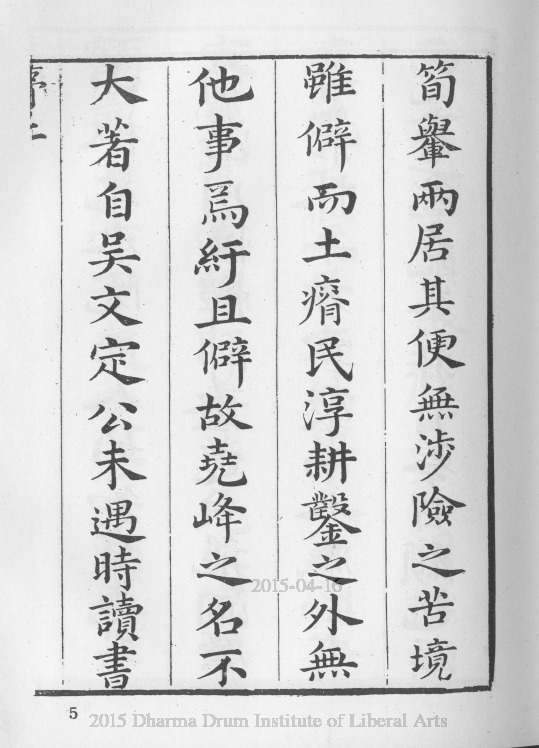 筍轝兩居其便無涉險之苦境
雖僻而土瘠民淳耕鑿之外無
他事焉紆且僻故堯峰之名不
大著自吴文定公未遇時讀書
序上
5
2015-04-16
2015 Dharma Drum Institute of Liberal Arts